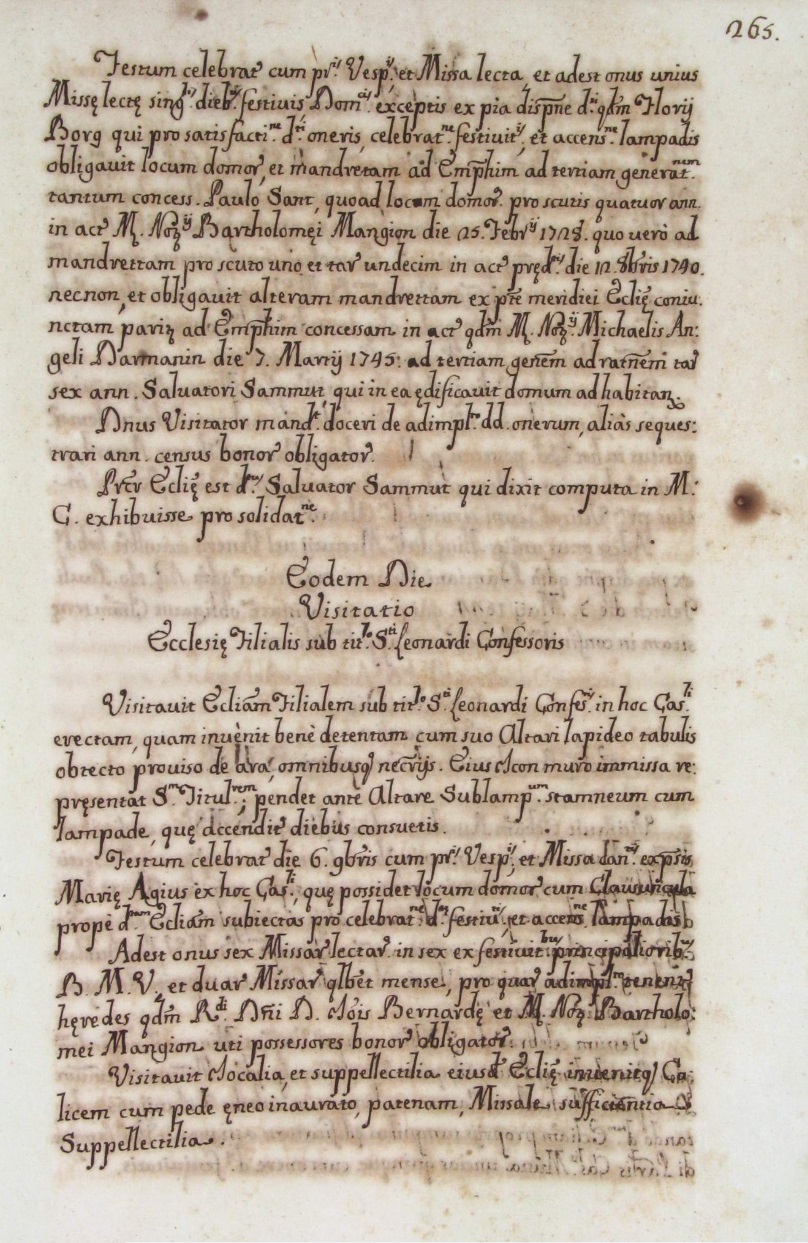 265.
Festum celebrat' cum pr.ˢ Vesp.ˢ et Missa lecta, et adest onus unius
Missę lectę sing.ˢ dieb.ˢ festiuis Dom.ˡⁱˢ exceptis ex pia dispne d.ⁱ qdm Florij
Borg qui pro satisfacti.ⁿᵉ d.ᵗⁱ oneris, celebrat.ⁿᵉ festiuit.ˢ, et accens.ⁿᵉ lampadis
obligauit locum domor', et mandretam ad Emphim ad tertiam generat.ⁿᵉᵐ
tantum concess. Paulo Sant, quoad locum domor'. pro scutis quatuor ann.
in act' M. Noz.ʲ Bartholomęi Mangion die 25. Febr.ʲ 1728. quo uerò ad
mandrettam pro scuto uno et tar' undecim in act' pręd.ˢ die 12. 8bris 1740.
necnon, et obligauit alteram mandrettam ex pte meridiei Eclię coniu.
nctam, pariz ad Emphim concessam in act' qdm M. Noz.ʲ Michaelis An:
geli Darmanin die 7. Martij 1745: ad tertiam genem ad ratnem tar'
sex ann. Saluatori Sammut qui in ea ędificauit domum ad habitan.
Dnus Visitator mand.ᵗ doceri de adimpl.ᵗᵒ dd. onerum, aliàs seques:
trari ann. census bonor' obligator'.
Prtr Eclię est d.ˢ Saluator Sammut qui dixit computa in M:
C. exhibuisse pro solidat.ⁿᵉ
Eodem Die
Visitatio
Ecclesię Filialis sub tit.ᵒ S.ᵗⁱ Leonardi Confessoris
Visitauit Ecliam Filialem sub tit.ᵒ S.ᵗⁱ Leonardi Confes.ˢ in hoc Cas.ˡⁱ
erectam, quam inuènit benè detentam cum suo Altari lapideo tabulis
obtecto prouiso de ara, omnibusq necrijs. Eius Icon muro immissa re:
pręsentat S.ᵐ Titul.ʳᵉᵐ; pendet ante Altare Sublamp.ᵘᵐ stamneum cum
lampade, quę accendit' diebus consuetis.
Festum celebrat' die 6. 9bris cum pr.ˢ Vesp.ˢ, et Missa can.ˢ expsis
Marię Agius ex hoc Cas.ˡⁱ, quę possidet locum domor' cum Clausuncula
propè d.ᵃᵐ Ecliam subiectas pro celebrat.ⁿᵉ d.ᵃᵉ festiu.ˢ, et accens.ⁿᵉ lampadis
Adest onus sex Missar' lectar'. in sex ex festiuit.ᵇᵘˢ principaliorib.ˢ
B. M. V., et duar' Missar' qlbet mense, pro quar' adimpl.ᵗᵒ tenentr
hęredes qdm R.ᵈⁱ Dni D. Alois Bernardę et M. Noz. Bartholo:
mei Mangion uti possessores bonor' obligator'.
Visitauit Jocalia, et suppellectilia eiusd. Eclię inuenitq Ca:
licem cum pede ęneo inaurato, patenam, Missale, sufficientia
Suppellectilia.